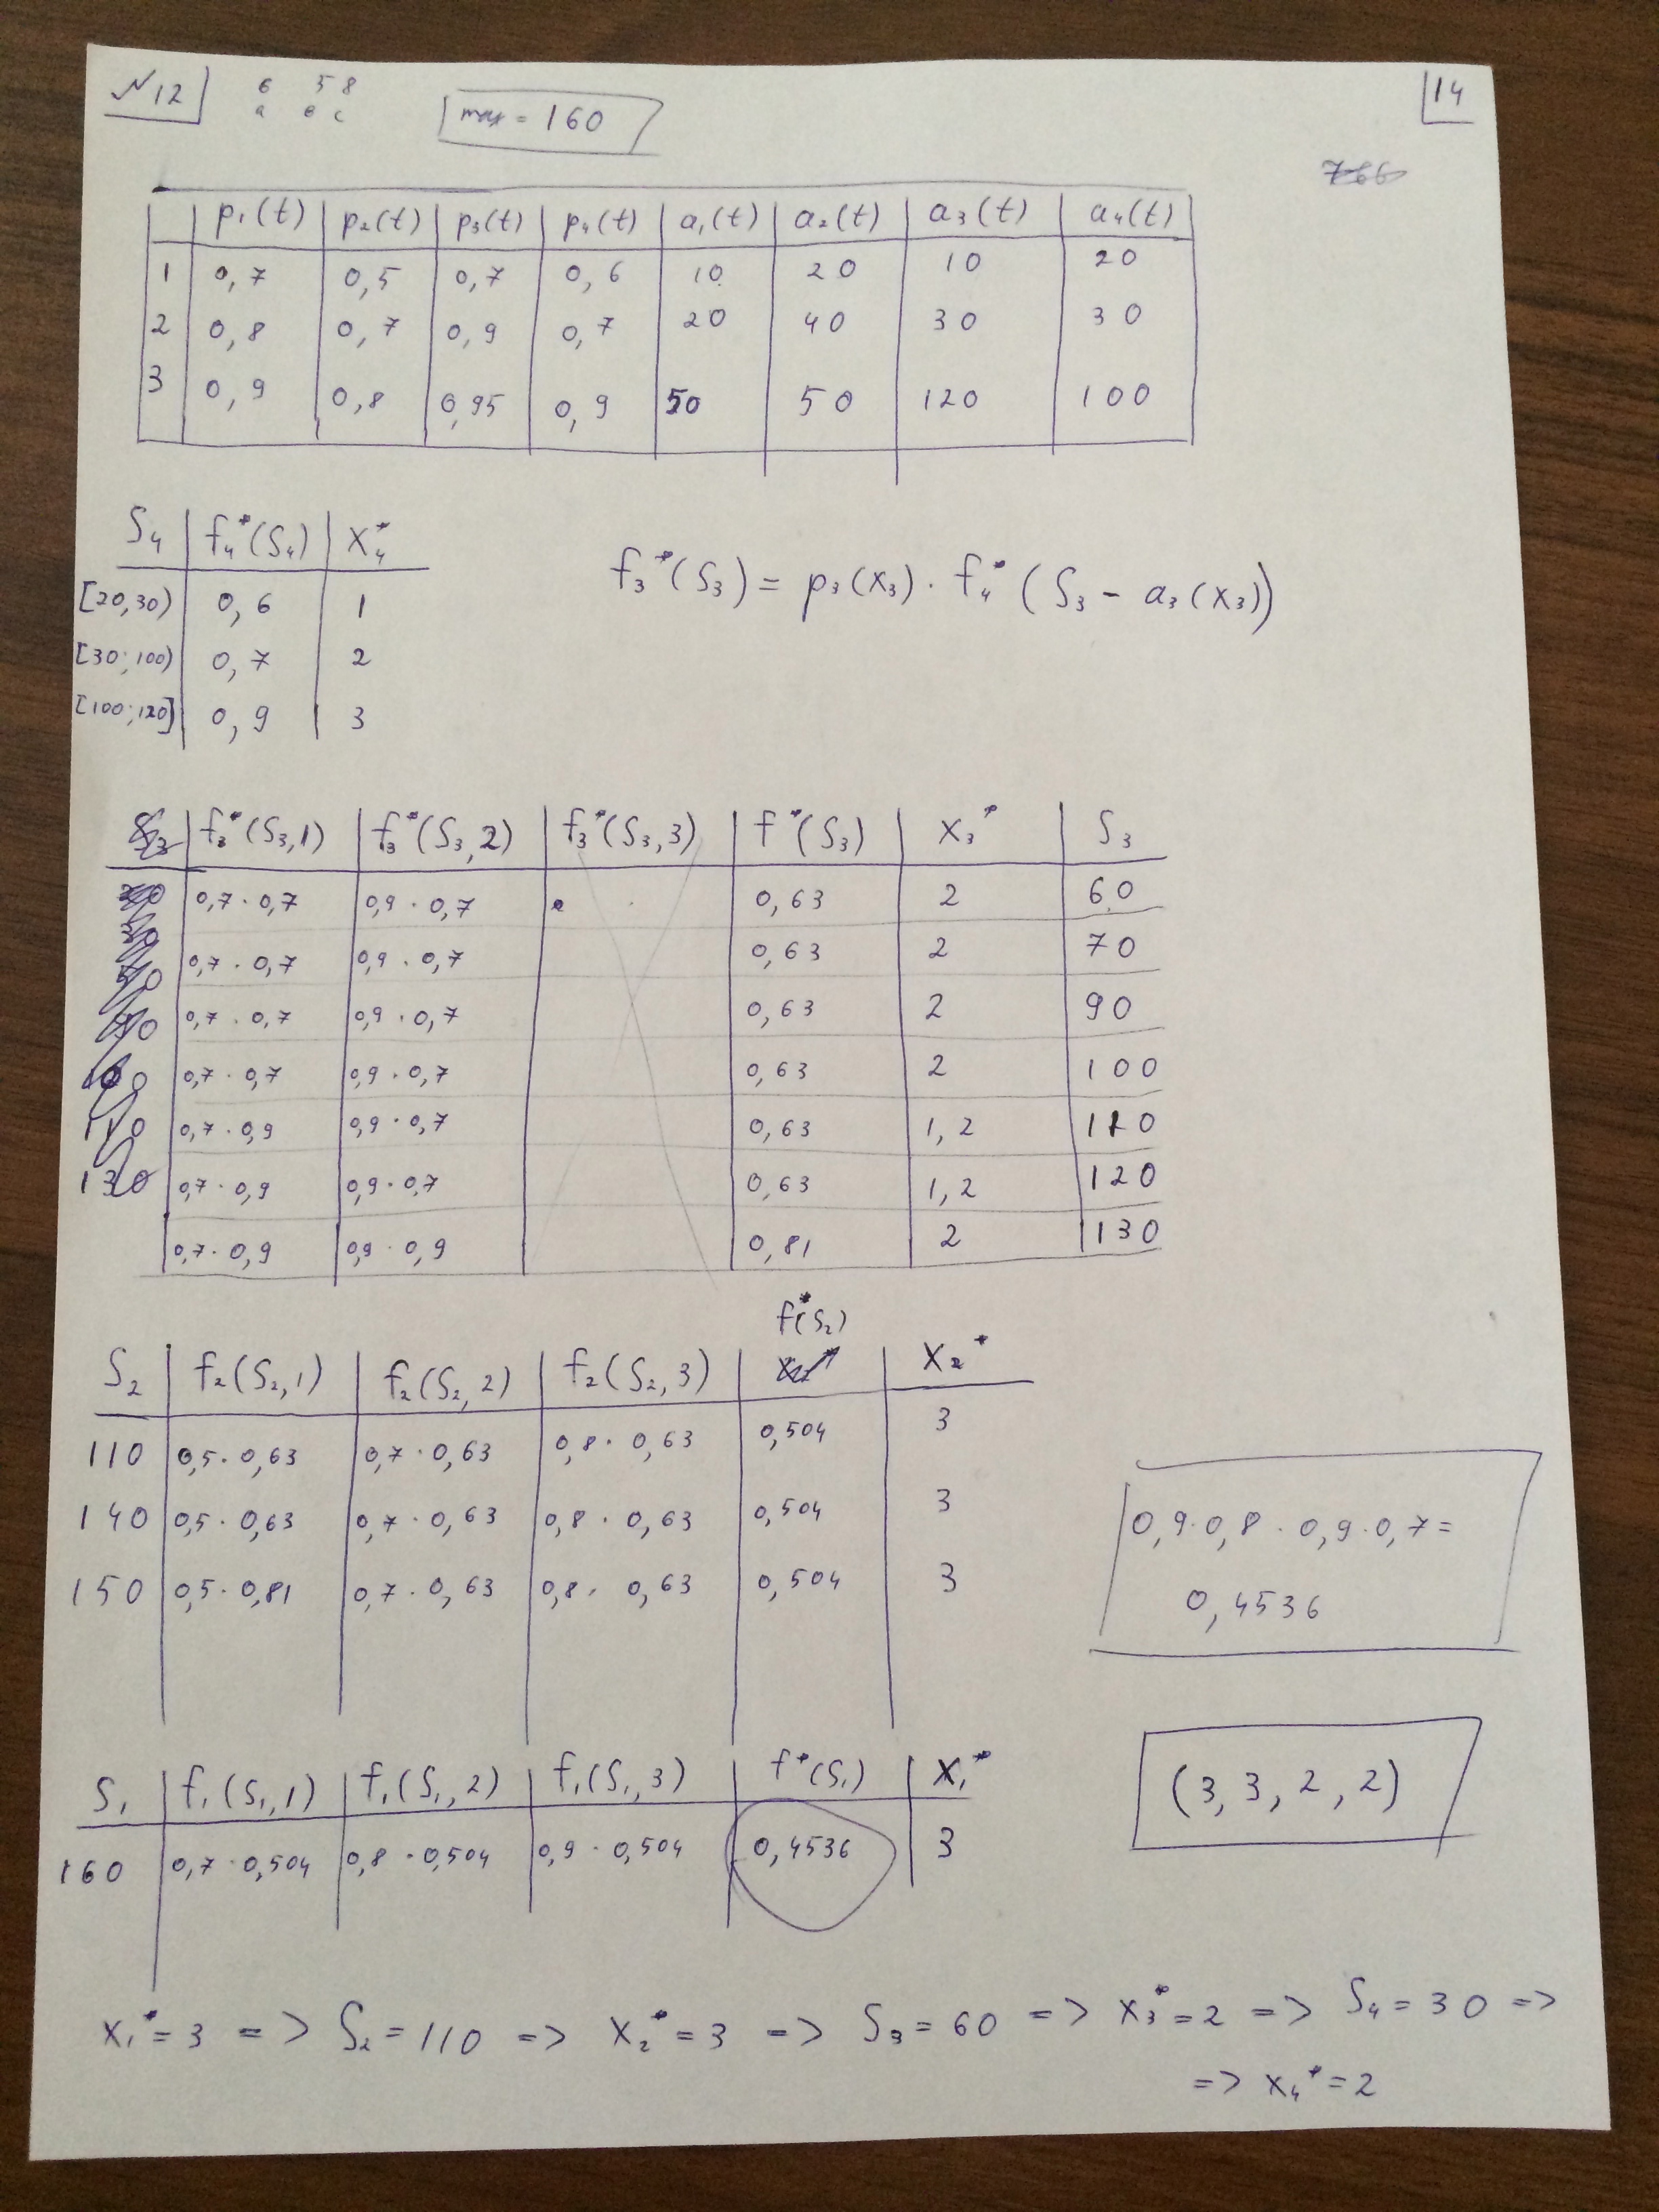 №12
6 5 8
a в c
max = 160
14
p₁(t) p₂(t) p₃(t) p₄(t) a₁(t) a₂(t) a₃(t) a₄(t)
1 0,7 0,5 0,7 0,6 10 20 10 20
2 0,8 0,7 0,9 0,7 20 40 30 30
3 0,9 0,8 0,95 0,9 50 50 120 100
S₄ f₄*(S₄) x₄*
[20,30) 0,6 1
[30;100) 0,7 2
[100;120] 0,9 3
f₃*(S₃) = p₃(x₃) · f₄*(S₃ - a₃(x₃))
f₃*(S₃,1) f₃*(S₃,2) f₃*(S₃,3) f*(S₃) x₃* S₃
0,7 · 0,7 0,9 · 0,7 0,63 2 60
0,7 · 0,7 0,9 · 0,7 0,63 2 70
0,7 · 0,7 0,9 · 0,7 0,63 2 90
0,7 · 0,7 0,9 · 0,7 0,63 2 100
0,7 · 0,9 0,9 · 0,7 0,63 1,2 110
0,7 · 0,9 0,9 · 0,7 0,63 1,2 120
0,7 · 0,9 0,9 · 0,9 0,81 2 130
S₂ f₂(S₂,1) f₂(S₂,2) f₂(S₂,3) f*(S₂) x₂*
110 0,5 · 0,63 0,7 · 0,63 0,8 · 0,63 0,504 3
140 0,5 · 0,63 0,7 · 0,63 0,8 · 0,63 0,504 3
150 0,5 · 0,81 0,7 · 0,63 0,8 · 0,63 0,504 3
0,9 · 0,8 · 0,9 · 0,7 =
0,4536
S₁ f₁(S₁,1) f₁(S₁,2) f₁(S₁,3) f*(S₁) x₁*
160 0,7 · 0,504 0,8 · 0,504 0,9 · 0,504 0,4536 3
(3, 3, 2, 2)
x₁* = 3 => S₂ = 110 => x₂* = 3 => S₃ = 60 => x₃* = 2 => S₄ = 30 =>
=> x₄* = 2